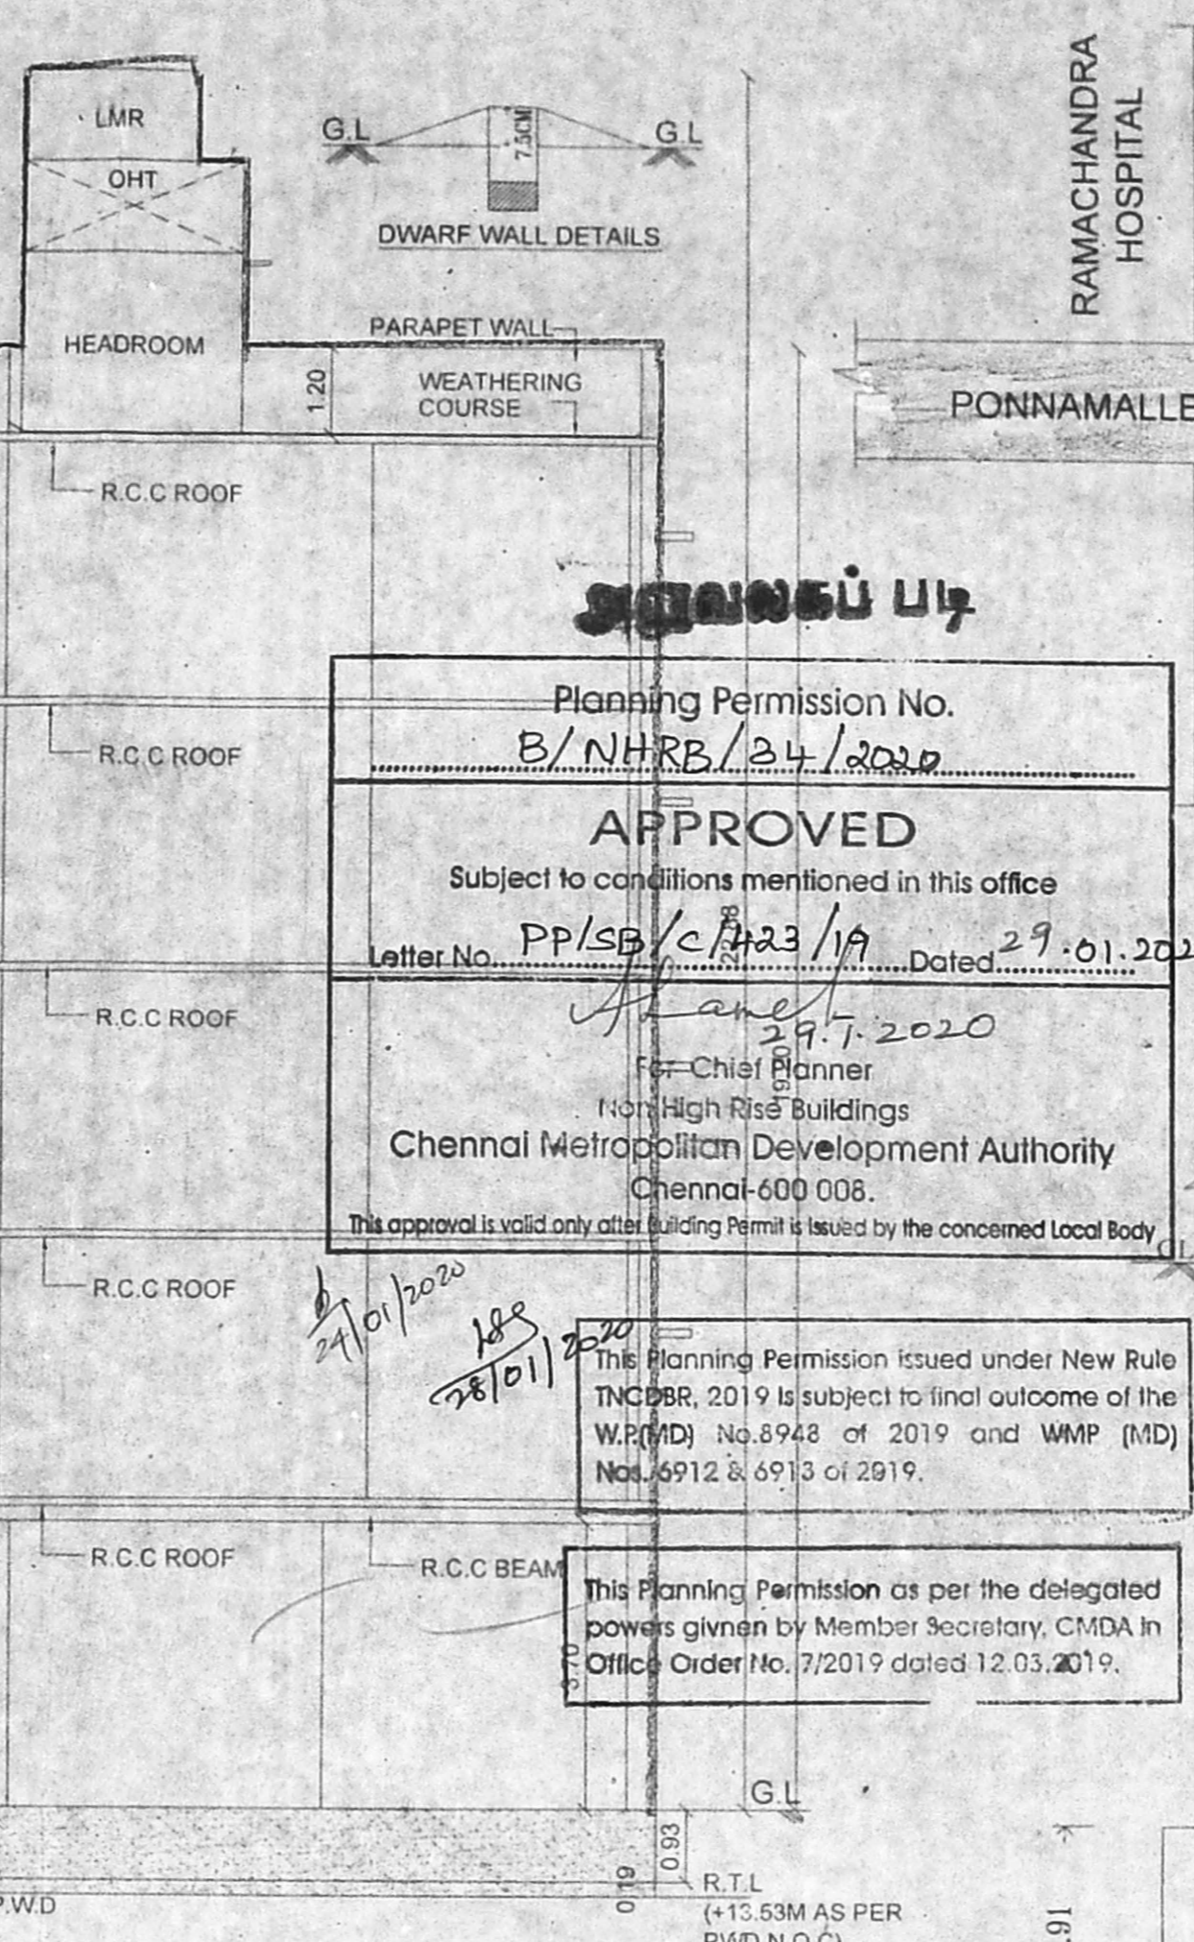 LMR
OHT
HEADROOM
G.L
7.5CM
G.L
DWARF WALL DETAILS
RAMACHANDRA
HOSPITAL
PARAPET WALL
1.20
WEATHERING
COURSE
PONNAMALLE
R.C.C ROOF
அலுவலகப் படி
Planning Permission No.
B/NHRB/34/2020
R.C.C ROOF
APPROVED
Subject to conditions mentioned in this office
Letter No. PP/SB/C/423/19 Dated 29.01.202
29.1.2020
R.C.C ROOF
For Chief Planner
Non High Rise Buildings
Chennai Metropolitan Development Authority
Chennai-600 008.
This approval is valid only after Building Permit is issued by the concerned Local Body
G.L
R.C.C ROOF
24/01/2020
28/01/2020
This Planning Permission issued under New Rule
TNCDBR, 2019 is subject to final outcome of the
W.P.(MD) No.8948 of 2019 and WMP (MD)
Nos. 6912 & 6913 of 2019.
R.C.C ROOF
R.C.C BEAM
This Planning Permission as per the delegated
powers givnen by Member Secretary, CMDA in
Office Order No. 7/2019 dated 12.03.2019.
3.70
G.L
0.93
0.19
R.T.L
(+13.53M AS PER
PWD N.O.C)
P.W.D
.91